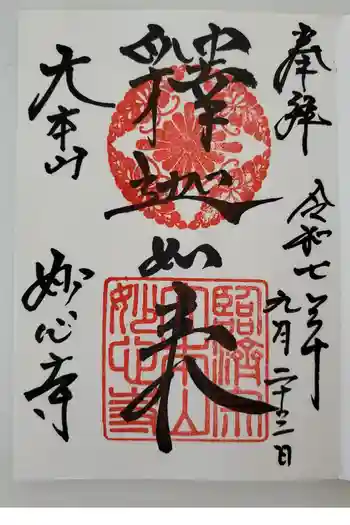 奉拝
令和七年九月二十三日
釋迦如来
大本山
妙心寺
臨濟宗
大本山
妙心寺